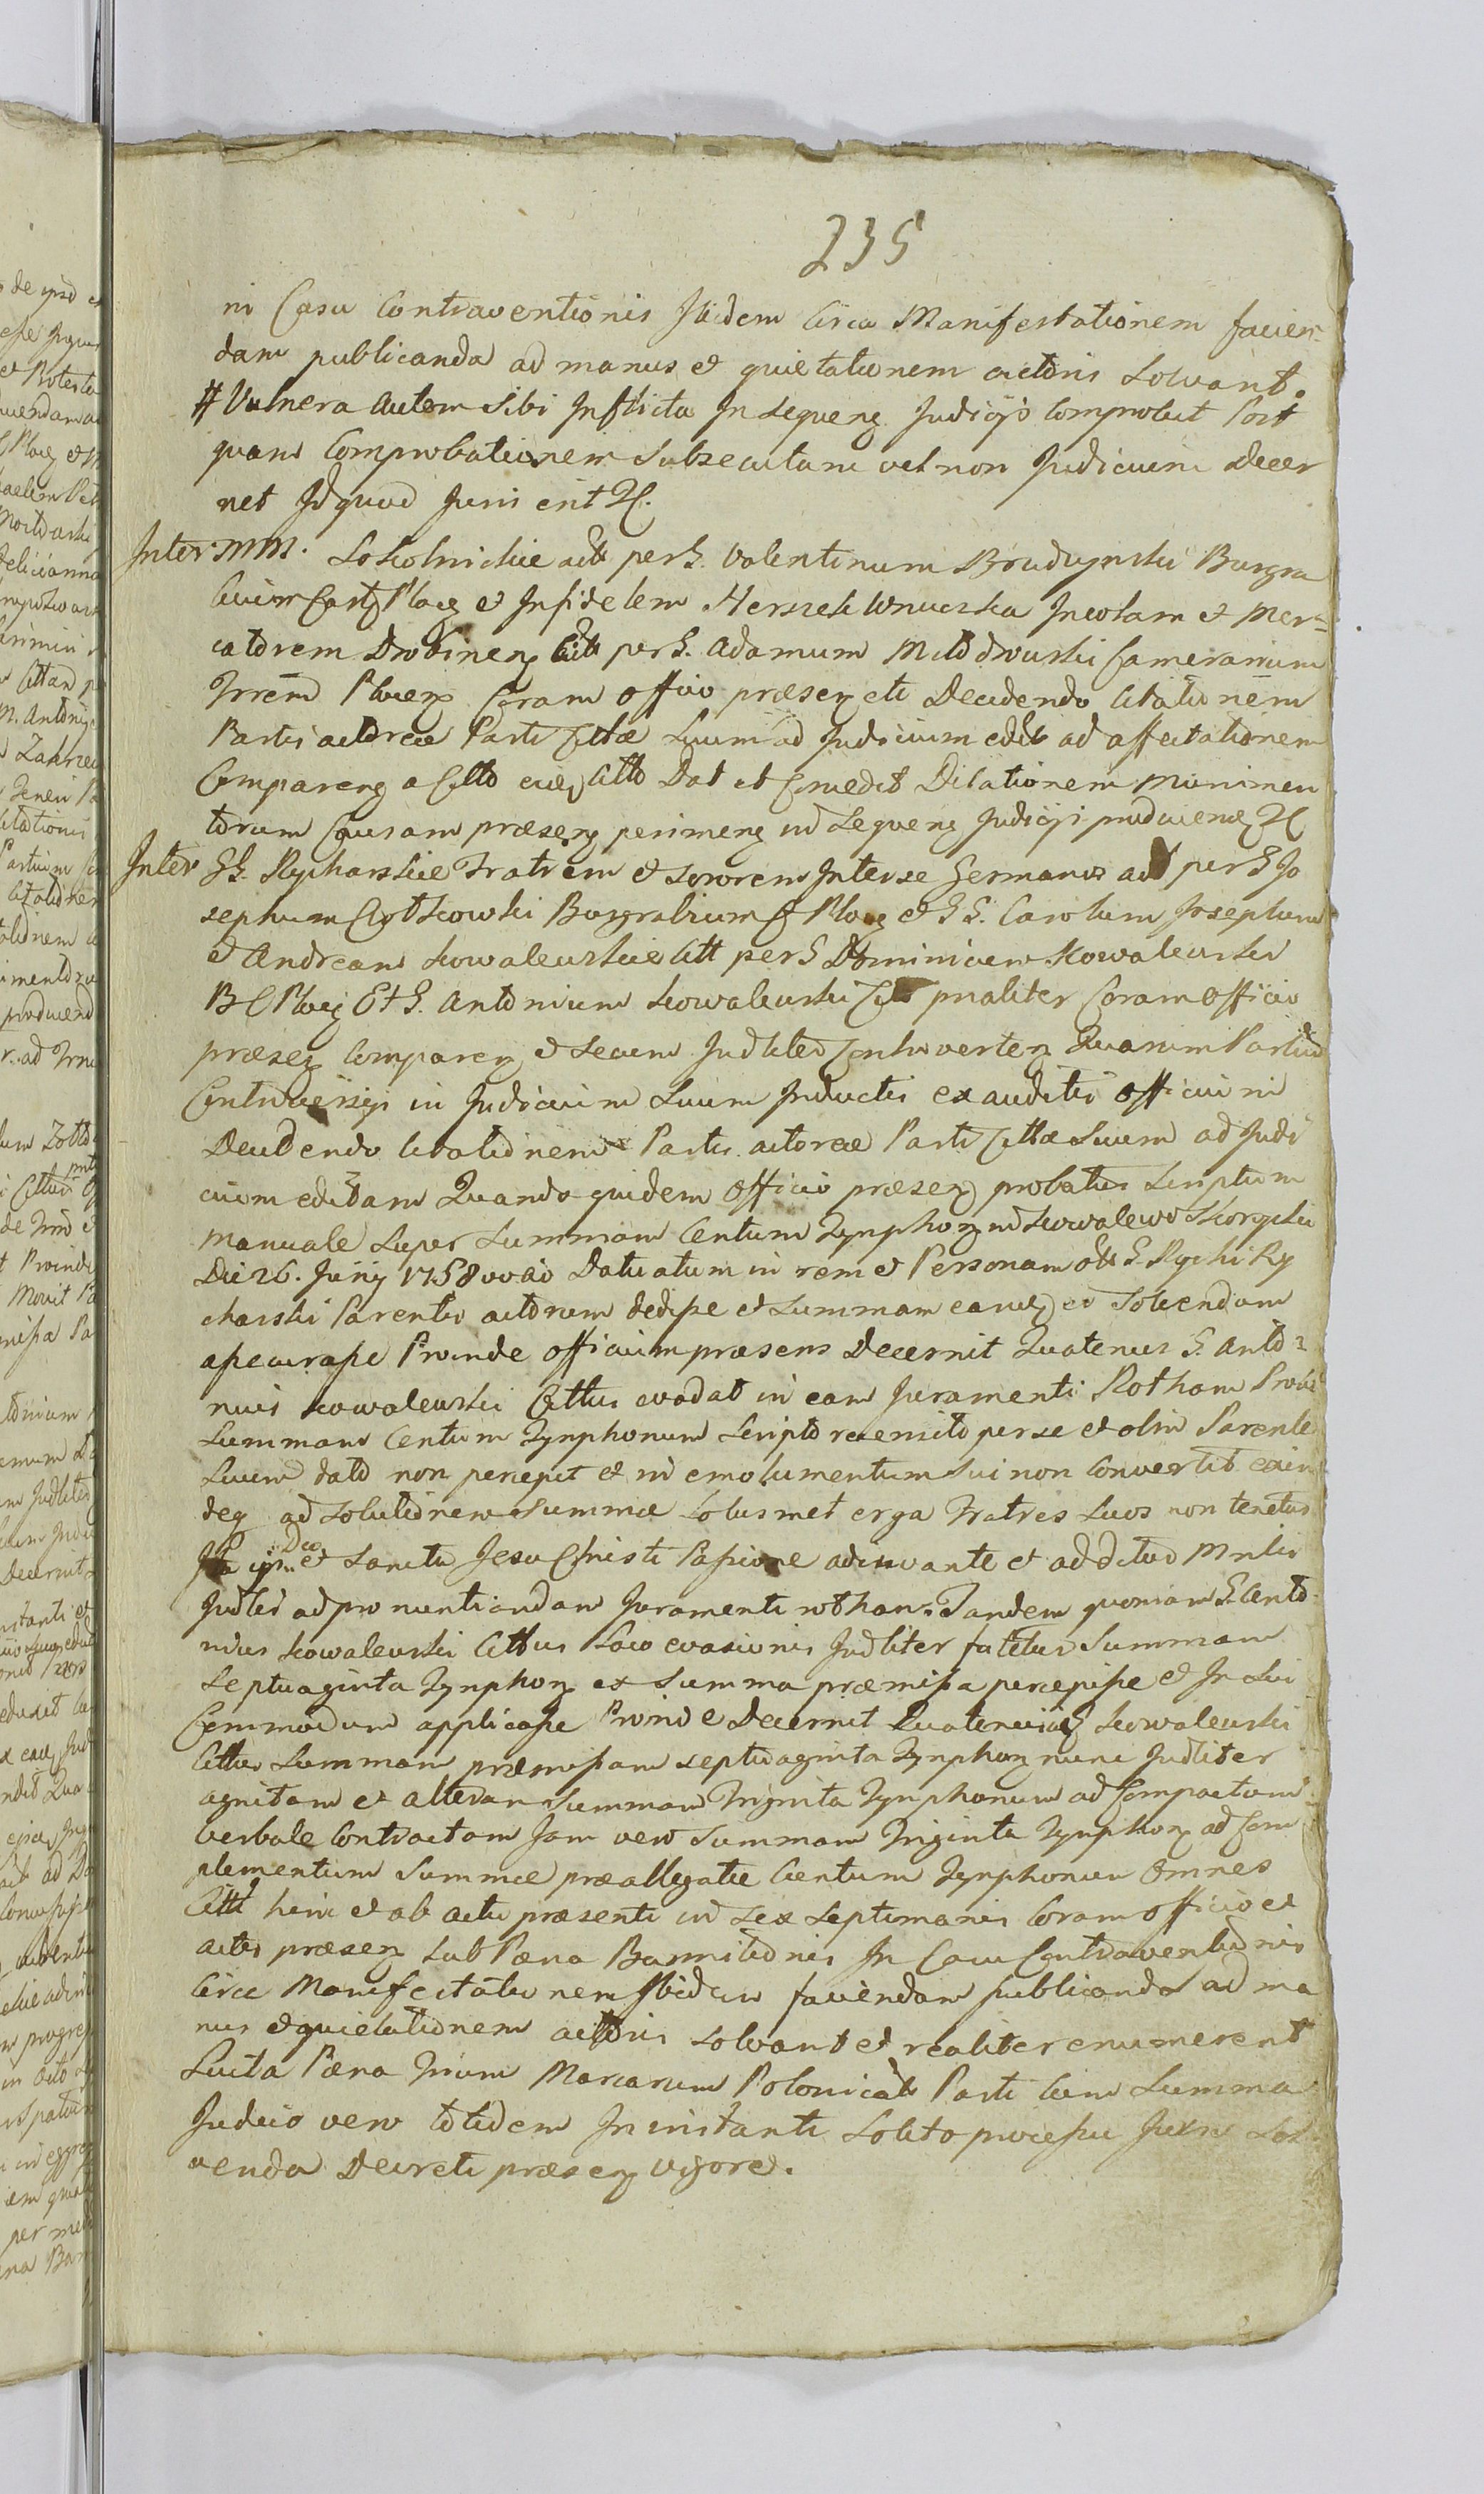 235
in Casu Contraventionis Ibidem Circa Manifestationem facien=
dam publicanda ad manus et quietationem actoris Solvant.
# Vulnera autem Sibi Inflicta In Sequenz Judicijs Comprobet Post
quam Comprobationem Subsecutam vel non Judicium Decer
net Id quod Juris erit
Inter MM. Sokolnickie act per G. Valentinum Brudzynski Burgra
bium Castr Ploc et Infidelem Herszek Wnuczka Incolam et Mer=
catorem Drobinenz Citt per G. Adamum Młodowski Camerarium
Trrem Plocen Coram officio præsen etc Decidendo Citationem
Partis actoreæ Parti Cittæ Suum ad Judicium edit ad affectationem
Comparenz a Citto Citto Dat et Concedit Dilationem Munimen
torum Causam præsenz perimenz in Sequenz Judicijs producend
Inter GG. Rycharskie Fratrem et Sororem Inter se Germanos act per G Jo
sephum Burgrabium C Ploc et GG. Carolum Josephum
et Andream Kowalewskie Citt per G Dominicum Kowalewski
B C Ploc Et G. Antonium Kowalewski Citt pnaliter Coram Officio
præsen Comparen et Secum Judliter Controverten Quarum Partium
Controversijs in Judicium Suum Inductis exauditis Officium
Decidendo Citationem Partis actoreæ Parti Cittæ Suum ad Judi
cium editam Quando quidem Officio præsen probatur Scriptum
manuale Super Summam Centum Tynphon in Kowalewo Skorupki
Die 26. Junij 1758vo Ao Datuatum in rem et Personam olim G. Rychi Ry
charski Parentis actorum dedisse et Summam eand ei Solvendam
assecurasse Proinde officium præsens Decernit Quatenus G. Anto=
nius Kowalewski Cittus evadat in eam Juramenti Rotham Prout
Summam Centum Tynphonum Scripto recensito per se et olim Parente
Suum dato non percepit et in emolumentum Sui non Convertit exin
deq ad Solutionem Summæ Solusmet erga Fratres Suos non tenetur
Ita ipm Deo et Sancta Jesu Christi Passione adiuvante et additus Mnlis
Judlis ad pronuntiandam Juramenti rotham. Tandem quoniam G. Anto=
nius Kowalewski Cittus Loco evasionis Judliter fatetur Summam
Septuaginta Tynphon ex Summa præmissa percepisse et In Sui
Commodum applicasse Proinde Decernit Quatenus Kowalewski
Cittus Summam præmissam septuaginta Tynphon nunc Judliter
agnitam et alteram Summam Triginta Tynphonum ad Compactum
verbale Contractam Jam vero Summam Triginta Tynphon ad Com
plementum Summæ præallegatæ Centum Tynphonum Omnes
Citti hinc et ab actu præsenti in Sex Septimanis Coram Officio et
actis præsen Sub Pæna Bannitionis In Casu Contraventionis
Circa Manifestationem Ibidem faciendam publicanda ad ma
nus et quietationem actoris Solvant et realiter enumerent
Luita Pæna Trium Marcarum Polonical Parti Cum Summa
Judicio vero totidem In instanti Solito processu Juxnes Sol
venda Decreti præsen vigore.